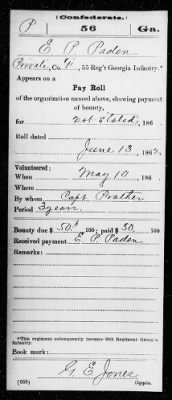 (Confederate.)
P 56 Ga.
E. P. Paden
Private, Co. H, 55 Reg't Georgia Infantry.*
Appears on a
Pay Roll
of the organization named above, showing payment
of bounty,
for Not Stated, 186
Roll dated
June 13, 1862.
Volunteered:
When May 10, 186
Where
By whom Capt Prather
Period 3 years
Bounty due $50, 100; paid $50, 100
Received payment E. P. Paden
Remarks:
*This regiment subsequently became 56th Regiment Georgia
Infantry.
Book mark:
G E Jones
(659) Copyist.